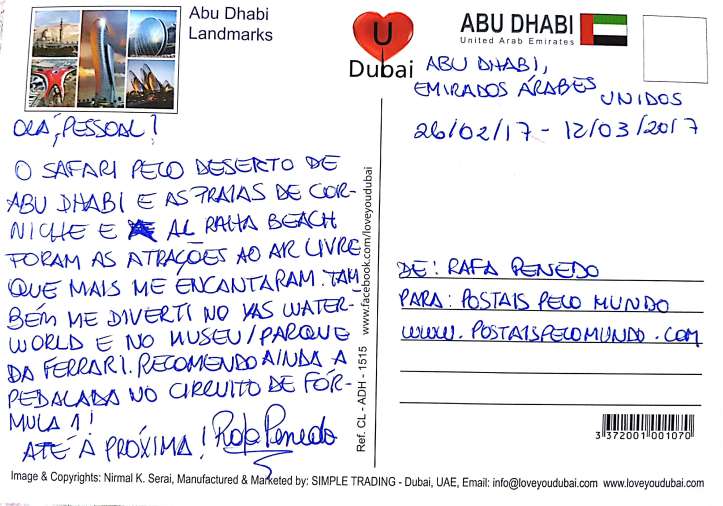 Abu Dhabi
Landmarks
U
Dubai
ABU DHABI
United Arab Emirates
OLÁ, PESSOAL!
O SAFARI PELO DESERTO DE
ABU DHABI E AS PRAIAS DE COR-
NICHE E AL RAHA BEACH
FORAM AS ATRAÇÕES AO AR LIVRE
QUE MAIS ME ENCANTARAM. TAM-
BÉM ME DIVERTI NO YAS WATER-
WORLD E NO MUSEU/PARQUE
DA FERRARI. RECOMENDO AINDA A
PEDALADA NO CIRCUITO DE FÓR-
MULA 1!
ATÉ A PRÓXIMA! Rafa Penedo
www.facebook.com/loveyoudubai
Ref. CL - ADH - 1515
ABU DHABI,
EMIRADOS ÁRABES
UNIDOS
26/02/17 - 12/03/2017
DE: RAFA PENEDO
PARA: POSTAIS PELO MUNDO
WWW.POSTAISPELOMUNDO.COM
3 372001 001070
Image & Copyrights: Nirmal K. Serai, Manufactured & Marketed by: SIMPLE TRADING - Dubai, UAE, Email: info@loveyoudubai.com www.loveyoudubai.com